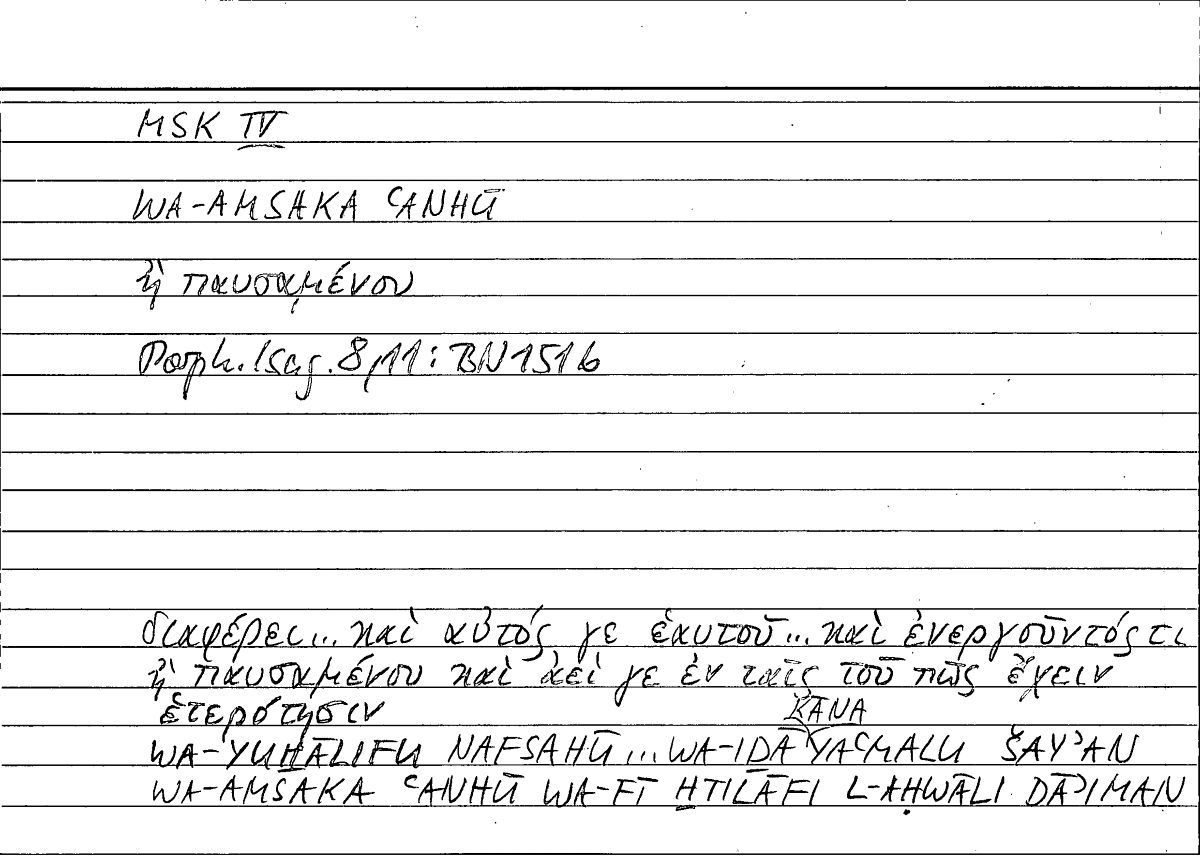 MSK IV
WA-AMSAKA ʿANHŪ
ἢ παυσαμένου
Porph. Isag. 8,11: BN 151b
διαφέρει... καὶ αὐτός γε ἑαυτοῦ... καὶ ἐνεργοῦντός τι
ἢ παυσαμένου καὶ ἀεί γε ἐν ταῖς τοῦ πῶς ἔχειν
ἑτερότησιν
KĀNA
WA-YUḪĀLIFU NAFSAHŪ... WA-IḎĀ YAʿMALU ŠAYʾAN
WA-AMSAKA ʿANHŪ WA-FĪ ḪTILĀFI L-AḤWĀLI DĀʾIMAN